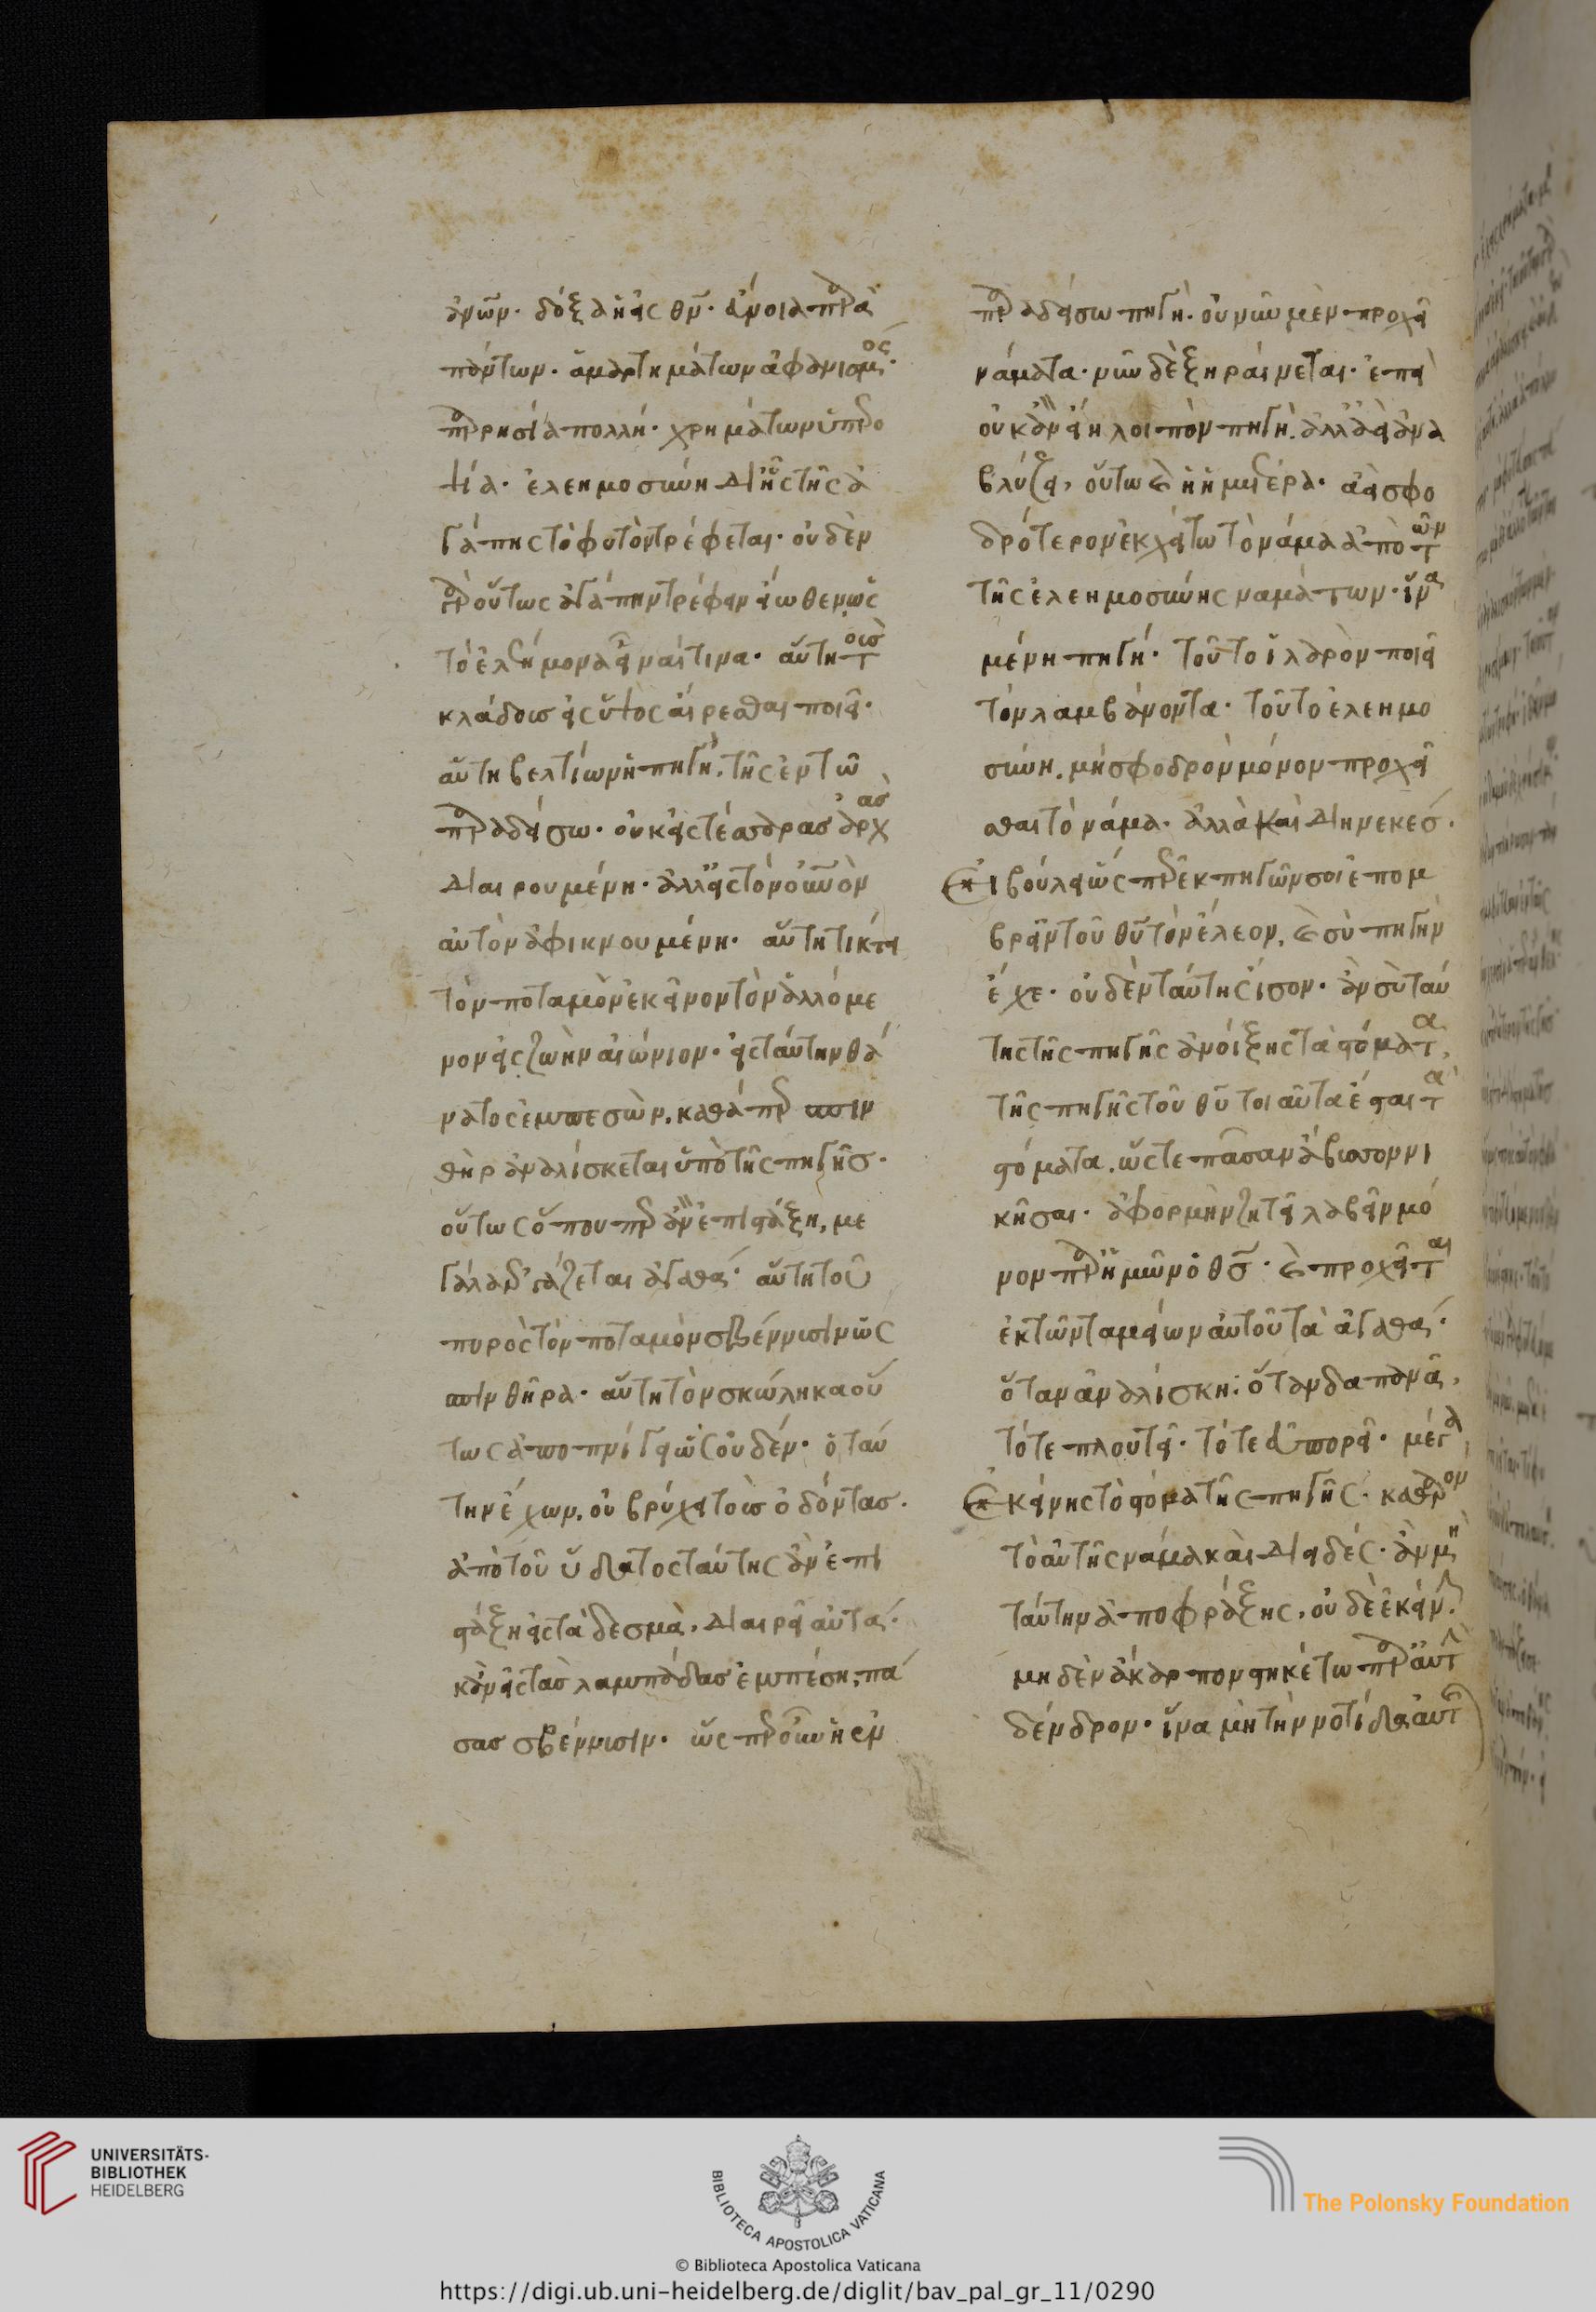 ἀνῶν. δόξα ἡ εἰς θν. εὔνοια παρὰ
πάντων. ἁμαρτημάτων ἀφανισμός.
παρρησία πολλή. χρημάτων ὑπερο
ψία. ἐλεημοσύνη δι' ἧς τῆς ἀ
γάπης τὸ φυτὸν τρέφεται. οὐδὲν
γὰρ οὕτως ἀγάπην τρέφειν εἴωθεν ὡς
τὸ ἐλεήμονα εἶναι τινα. αὕτη τοὺς
κλάδους εἰς ὕψος αἴρεσθαι ποιεῖ.
αὕτη βελτίων ἡ πηγὴ, τῆς ἐν τῶ
παραδείσω. οὐκ εἰς τέσσαρας ἀρχὰς
διαιρουμένη. ἀλλ' εἰς τὸν οὐνὸν
αὐτὸν ἀφικνουμένη. αὕτη τίκτει
τὸν ποταμὸν ἐκεῖνον τὸν ἁλλόμε
νον εἰς ζωὴν αἰώνιον. εἰς ταύτην θά
νατος ἐμπεσὼν, καθάπερ σπιν
θὴρ ἀναλίσκεται ὑπὸ τῆς πηγῆς.
οὕτως ὅπουπερ ἂν ἐπιστάξη, με
γάλα ἐργάζεται ἀγαθά. αὕτη τοῦ
πυρὸς τὸν ποταμὸν σβέννυσιν ὡς
σπινθῆρα. αὕτη τὸν σκώληκα οὕ
τως ἀποπνίγει ὡς οὐδέν. ὁ ταύ
την ἔχων, οὐ βρύχει τοὺς ὀδόντας.
ἀπὸ τοῦ ὕδατος ταύτης ἂν ἐπι
στάξη εἰς τὰ δεσμὰ, διαιρεῖ αὐτά.
κἂν εἰς τὰς λαμπάδας ἐμπέση, πά
σας σβέννυσιν. ὥσπερ οὖν ἡ ἐν
παραδείσω πηγὴ. οὐ νῦν μὲν προχεῖ
νάματα. νῦν δὲ ξηραίνεται. ἐπεὶ
οὐκ ἂν εἴη λοιπὸν πηγὴ. ἀλλ' ἀεὶ ἀνα
βλύζει, οὕτω καὶ ἡ ἡμετέρα. ἀεὶ σφο
δρότερον ἐκχείτω τὸ νάμα ἀπὸ τῶν
τῆς ἐλεημοσύνης ναμάτων. ἵνα
μένη πηγή. τοῦτο ἱλαρὸν ποιεῖ
τὸν λαμβάνοντα. τοῦτο ἐλεημο
σύνη, μὴ σφοδρὸν μόνον προχεῖ
σθαι τὸ νάμα. ἀλλὰ καὶ διηνεκές.
Εἰ βούλει ὥσπερ ἐκ πηγῶν σοι ἐπομ
βρεῖν τοῦ θῦ τὸν ἔλεον, καὶ σὺ πηγὴν
ἔχε. οὐδὲν ταύτης ἴσον. ἂν σὺ ταύ
της τῆς πηγῆς ἀνοίξης τὰ στόματα,
τῆς πηγῆς τοῦ θῦ τοιαῦτα ἔσται τὰ
στόματα, ὥστε πᾶσαν ἄβυσσον νι
κῆσαι. ἀφορμὴν ζητεῖ λαβεῖν μό
νον παρ' ἡμῶν ὁ θς. καὶ προχεῖται
ἐκ τῶν ταμείων αὐτοῦ τὰ ἀγαθά.
ὅταν ἀναλίσκη. ὅταν δαπανᾶ,
τότε πλουτεῖ. τότε εὐπορεῖ. μέγα,
Ἐκείνης τὸ στόμα τῆς πηγῆς. καθαρὸν
τὸ αὐτῆς νάμα καὶ διειδές. ἂν μὴ
ταύτην ἀποφράξης, οὐδὲ ἐκείν.
μηδὲν ἄκαρπον στηκέτω παρ' αὐτ
δένδρον. ἵνα μὴ τὴν νοτίδα αὐτ
UNIVERSITÄTS-
BIBLIOTHEK
HEIDELBERG
BIBLIOTECA APOSTOLICA VATICANA
The Polonsky Foundation
© Biblioteca Apostolica Vaticana
https://digi.ub.uni-heidelberg.de/diglit/bav_pal_gr_11/0290